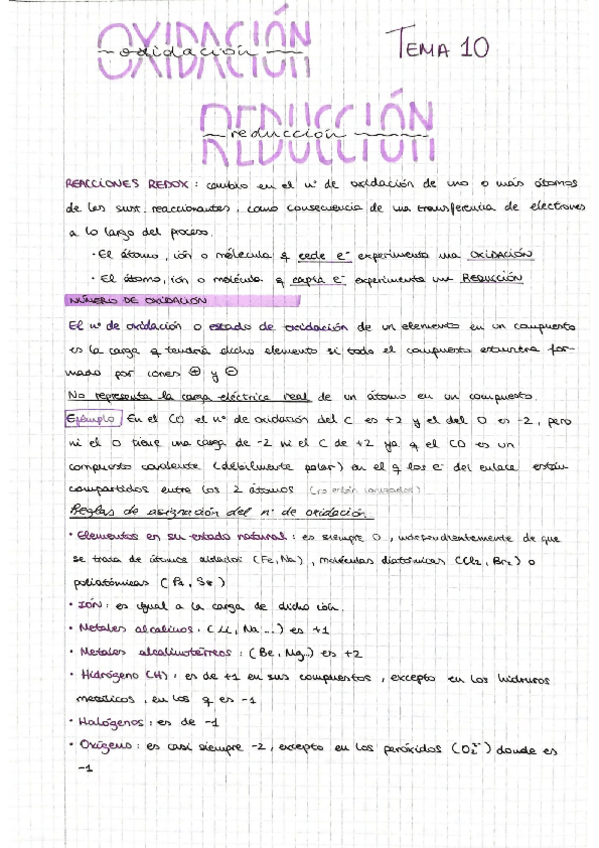 OXIDACIÓN
oxidación
TEMA 10
REDUCCIÓN
reducción
REACCIONES REDOX: cambio en el nº de oxidación de uno o más átomos
de las sust. reaccionantes, como consecuencia de una transferencia de electrones
a lo largo del proceso.
· El átomo, ión o molécula q cede e⁻ experimenta una OXIDACIÓN
· El átomo, ión o molécula q capta e⁻ experimenta una REDUCCIÓN
NÚMERO DE OXIDACIÓN
El nº de oxidación o estado de oxidación de un elemento en un compuesto
es la carga q tendría dicho elemento si todo el compuesto estuviera for-
mado por iones ⊕ y ⊖
No representa la carga eléctrica real de un átomo en un compuesto.
Ejemplo En el CO el nº de oxidación del C es +2 y el del O es -2, pero
ni el O tiene una carga de -2 ni el C de +2 ya q el CO es un
compuesto covalente (débilmente polar) en el q los e⁻ del enlace están
compartidos entre los 2 átomos (no están ionizados)
Reglas de asignación del nº de oxidación
• Elementos en su estado natural: es siempre 0, independientemente de que
se trata de átomos aislados (Fe, Na), moléculas diatómicas (Cl2, Br2) o
poliatómicas (P4, S8)
• IÓN: es igual a la carga de dicho ión.
• Metales alcalinos. (Li, Na...) es +1
• Metales alcalinotérreos: (Be, Mg...) es +2
• Hidrógeno (H): es de +1 en sus compuestos, excepto en los hidruros
metálicos, en los q es -1
• Halógenos: es de -1
• Oxígeno: es casi siempre -2, excepto en los peróxidos (O2²⁻) donde es
-1